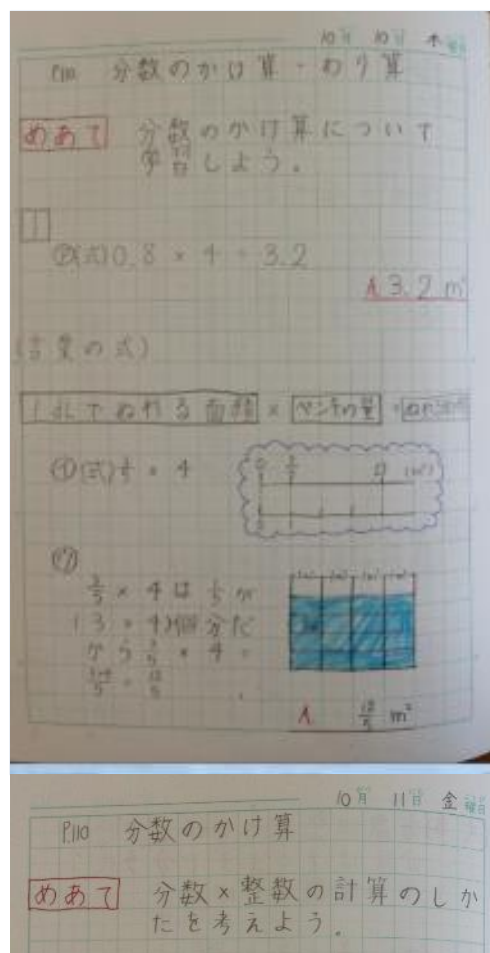 10月 10日 木曜日
P.110 分数のかけ算・わり算
めあて 分数のかけ算について
学習しよう。
1
㋐(式)0.8 × 4 = 3.2
A 3.2 m²
(言葉の式)
1dLでぬれる面積 × ペンキの量 =
(式) × 4
0 (m²)
3/5 × 4 は 1/5 が
(3 × 4)個分だ
から 3/5 × 4 =
3×4/5 = 12/5
A 12/5 m²
10月 11日 金曜日
P.110 分数のかけ算
めあて 分数×整数の計算のしか
たを考えよう。